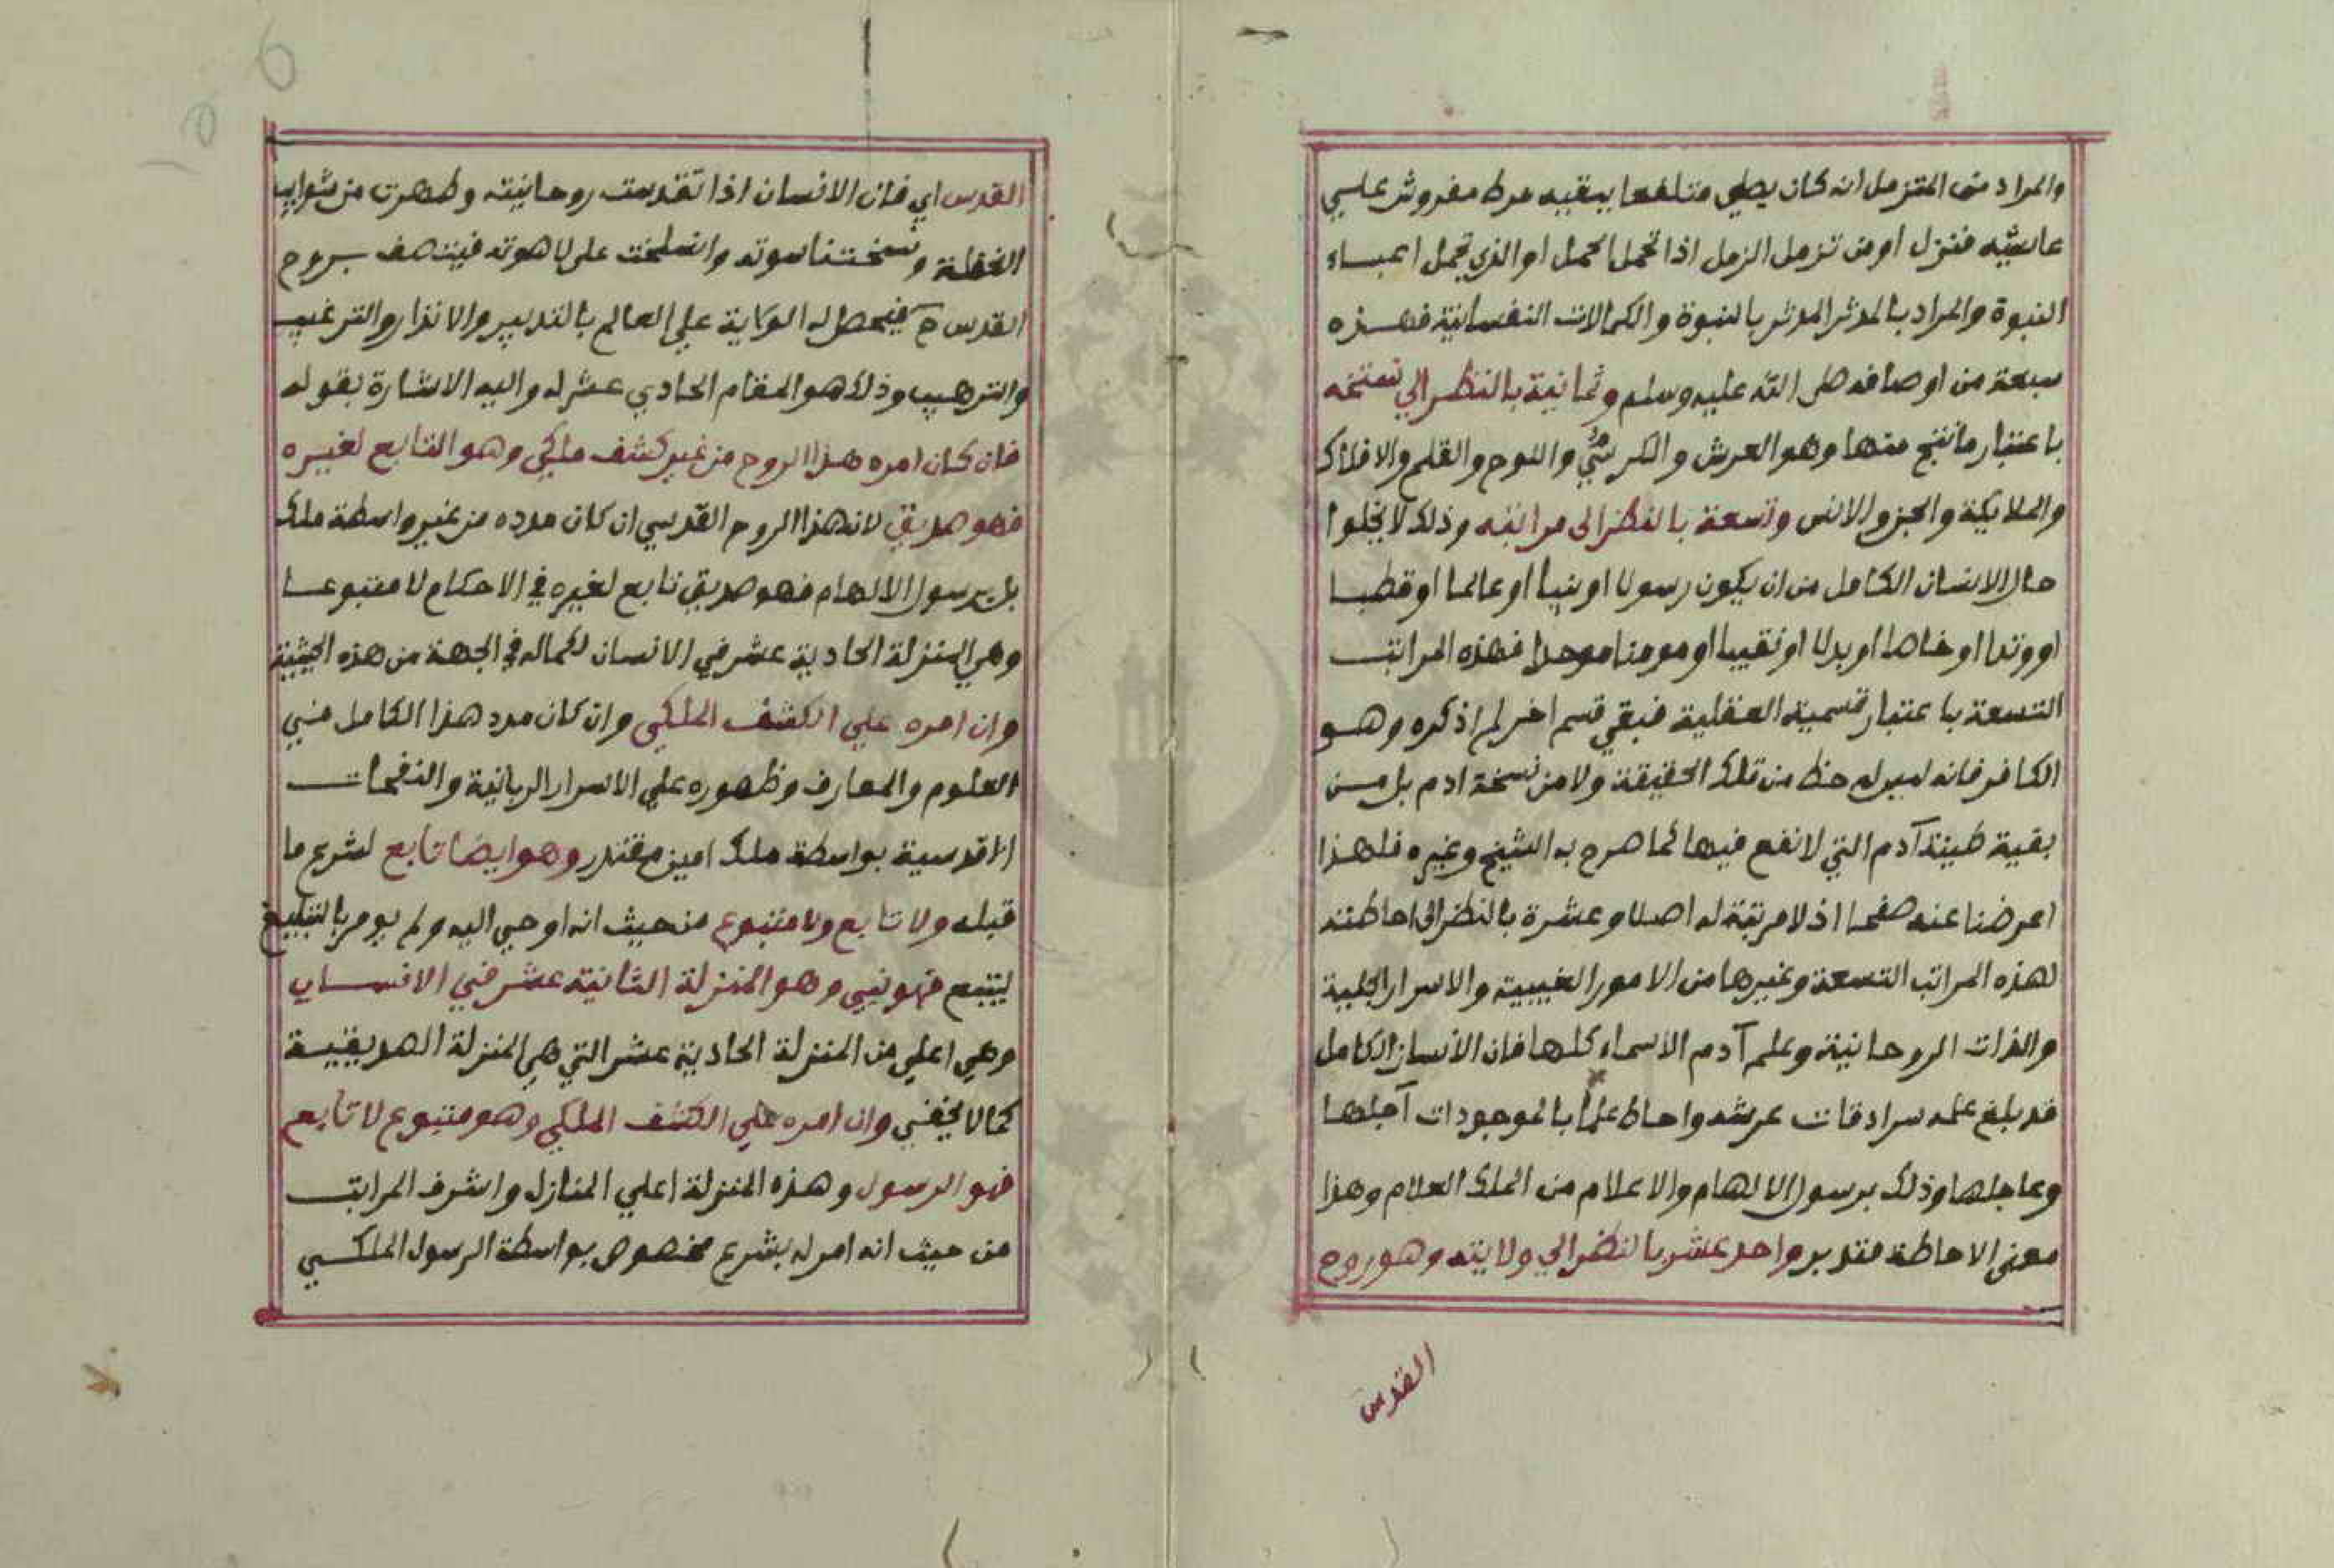 والمراد من المتزمل انه كان يصلي متلفعا ببقيه مرط مفروش علي
عايشه فنزل او من تزمل الزمل اذا تحمل الحمل او الذي تحمل اعباء
النبوة والمراد بالمدثر المدثر بالنبوة والكمالات النفسانية فهذه
سبعة من اوصافه صلى الله عليه وسلم وثمانية بالنظر الي نسخته
باعتبار ما نتج منها وهو العرش والكرسي واللوح والقلم والافلاك
والملايكة والجن والانس وتسعة بالنظر الى مراتبه وذلك لا يخلوا
حال الانسان الكامل من ان يكون رسولا او نبيا او عالما او قطبا
او وتدا او خاصا او بدلا او نقيبا او مومنا موحدا فهذه المراتب
التسعة باعتبار قسمية العقلية فبقي قسم اخر لم اذكره وهو
الكافر فانه ليس له حظ من تلك الحقيقة ولا من نسخة ادم بل من
بقية طينة آدم التي لا نفع فيها كما صرح به الشيخ وغيره فلهذا
اعرضنا عنه صفحا اذ لا مرتبة له اصلا وعشرة بالنظر الى احاطته
لهذه المراتب التسعة وغيرها من الامور الغيبية والاسرار الجلية
والذات الروحانية وعلم آدم الاسماء كلها فان الانسان الكامل
قد بلغ علمه سرادقات عرشه واحاط علما بالموجودات آجلها
وعاجلها وذلك برسول الالهام والاعلام من الملك العلام وهذا
معنى الاحاطة فتدبر واحد عشر بالنظر الي ولايته وهو روح
القدس
القدس اي فان الانسان اذا تقدست روحانيته وطهرت من شوايب
الغفلة ونسخت ناسوته وانسلخت على لاهوته فيتصف بروح
القدس ح فيحصل له الولاية علي العالم بالتدبير والانذار والترغيب
والترهيب وذلك هو المقام الحادي عشر له واليه الاشارة بقوله
فان كان امره هذا الروح من غير كشف ملكي وهو التابع لغيره
فهو صديق لان هذا الروح القدسي ان كان مدده من غير واسطة ملك
بل برسول الالهام فهو صديق تابع لغيره في الاحكام لا متبوعا
وهي المنزلة الحادية عشر في الانسان لكماله في الجهة من هذه الحيثية
وان امره علي الكشف الملكي وان كان مدد هذا الكامل في
العلوم والمعارف وظهوره علي الاسرار الربانية والنفحات
القدسية بواسطة ملك امين مقتدر وهو ايضا تابع لشرع ما
قبله ولا تابع ولا متبوع من حيث انه اوحي اليه ولم يومر بالتبليغ
ليتبع فهو نبي وهو المنزلة الثانية عشر في الانسان
وهي اعلي من المنزلة الحادية عشر التي هي المنزلة الصديقية
كما لا يخفي وان امره علي الكشف الملكي وهو متبوع لا تابع
فهو الرسول وهذه المنزلة اعلي المنازل واشرف المراتب
من حيث انه امر له بشرع مخصوص بواسطة الرسول الملكي